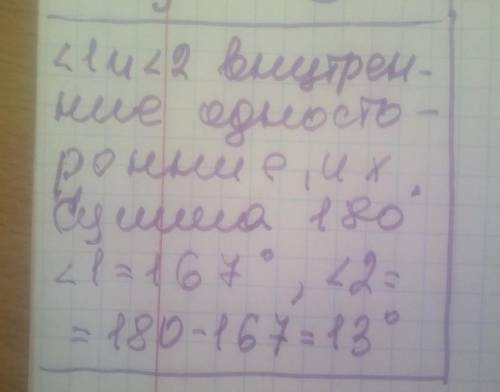 <1 и <2 внутрен-
ние односто-
ронние, их
сумма 180°
<1 = 167°, <2 =
= 180 - 167 = 13°